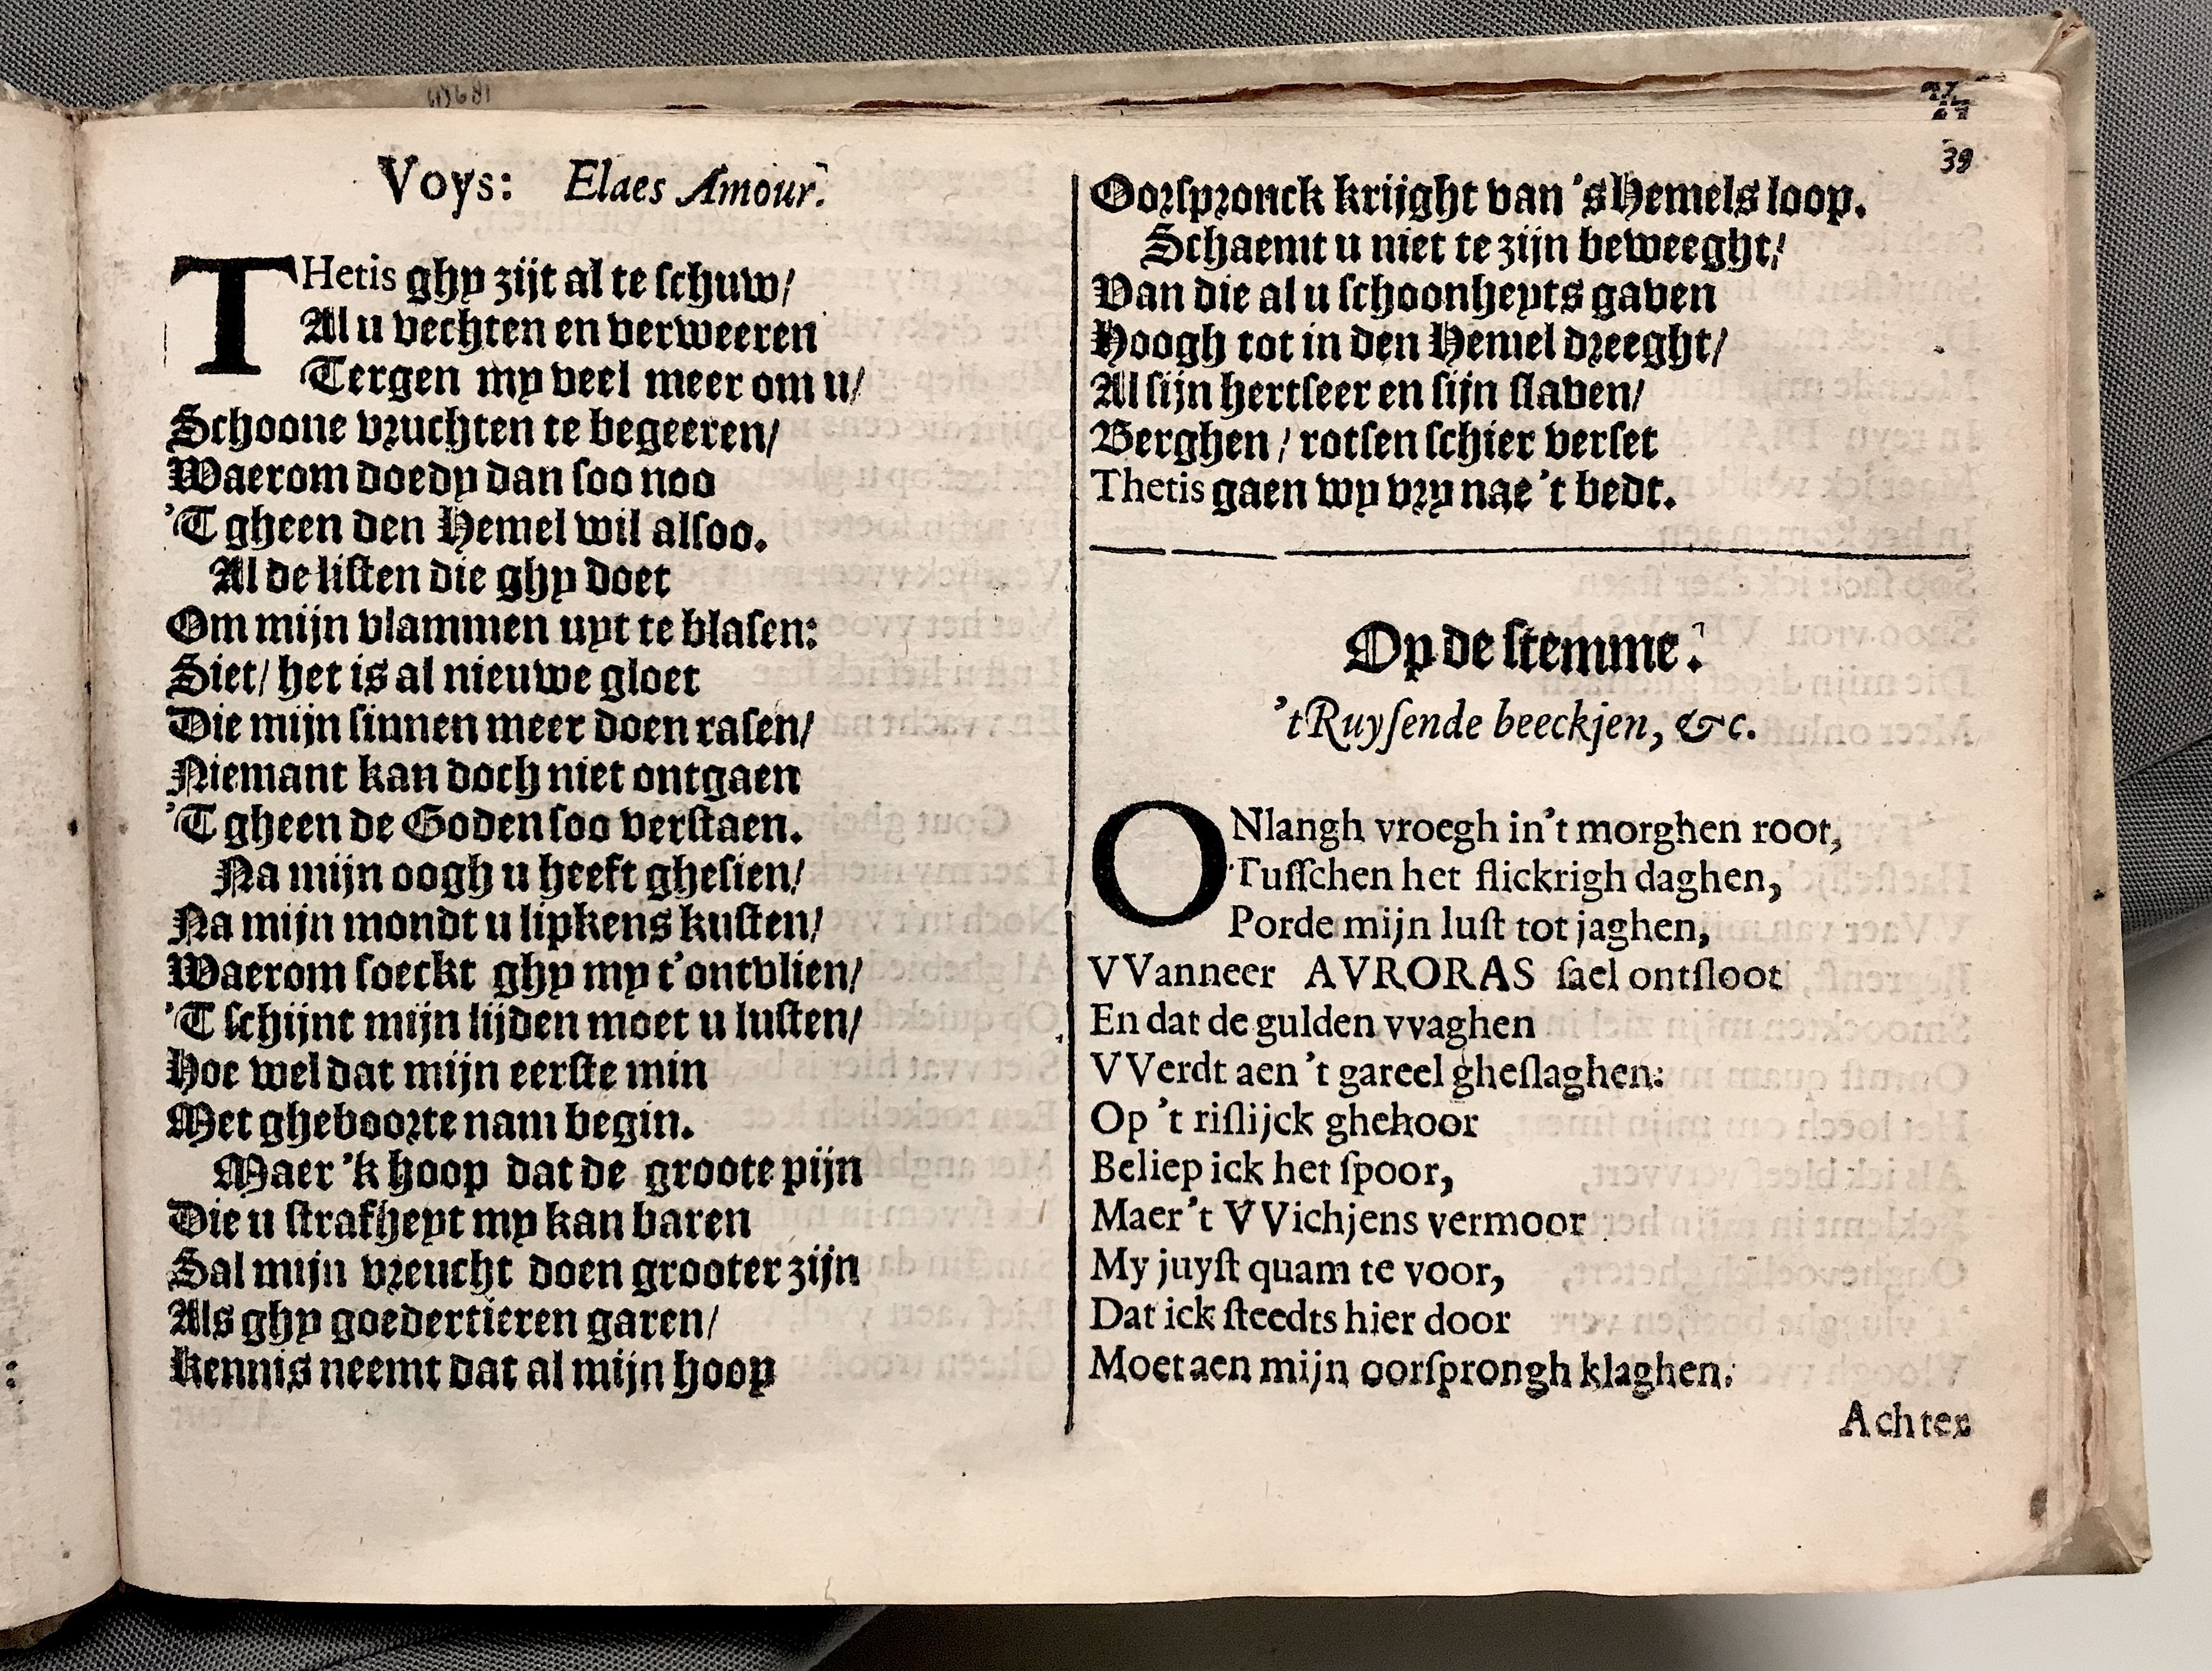 Voys: Elaes Amour.
THetis ghy zijt al te schuw/
Al u vechten en verweeren
Tergen my veel meer om u/
Schoone vruchten te begeeren/
Waerom doedy dan soo noo
'T gheen den Hemel wil alsoo.
Al de listen die ghy doet
Om mijn vlammen uyt te blasen:
Siet/ het is al nieuwe gloet
Die mijn sinnen meer doen rasen/
Niemant kan doch niet ontgaen
'T gheen de Goden soo verstaen.
Na mijn oogh u heeft ghesien/
Na mijn mondt u lipkens kusten/
Waerom soeckt ghy my t'ontvlien/
'T schijnt mijn lijden moet u lusten/
Hoe wel dat mijn eerste min
Met gheboorte nam begin.
Maer 'k hoop dat de groote pijn
Die u strafheyt my kan baren
Sal mijn vreucht doen grooter zijn
Als ghy goedertieren garen/
Kennis neemt dat al mijn hoop
39
Oorspronck krijght van 's Hemels loop.
Schaemt u niet te zijn beweeght/
Van die al u schoonheyts gaven
Hoogh tot in den Hemel dreeght/
Al sijn hertseer en sijn slaven/
Berghen / rotsen schier verset
Thetis gaen wy vry nae 't bedt.
Op de stemme:
't Ruysende beeckjen, &c.
ONlangh vroegh in't morghen root,
Tusschen het flickrigh daghen,
Porde mijn lust tot jaghen,
VVanneer AVRORAS sael ontsloot
En dat de gulden vvaghen
VVerdt aen 't gareel gheslaghen:
Op 't rislijck ghehoor
Beliep ick het spoor,
Maer't VVichjens vermoor
My juyst quam te voor,
Dat ick steedts hier door
Moet aen mijn oorsprongh klaghen.
Achter